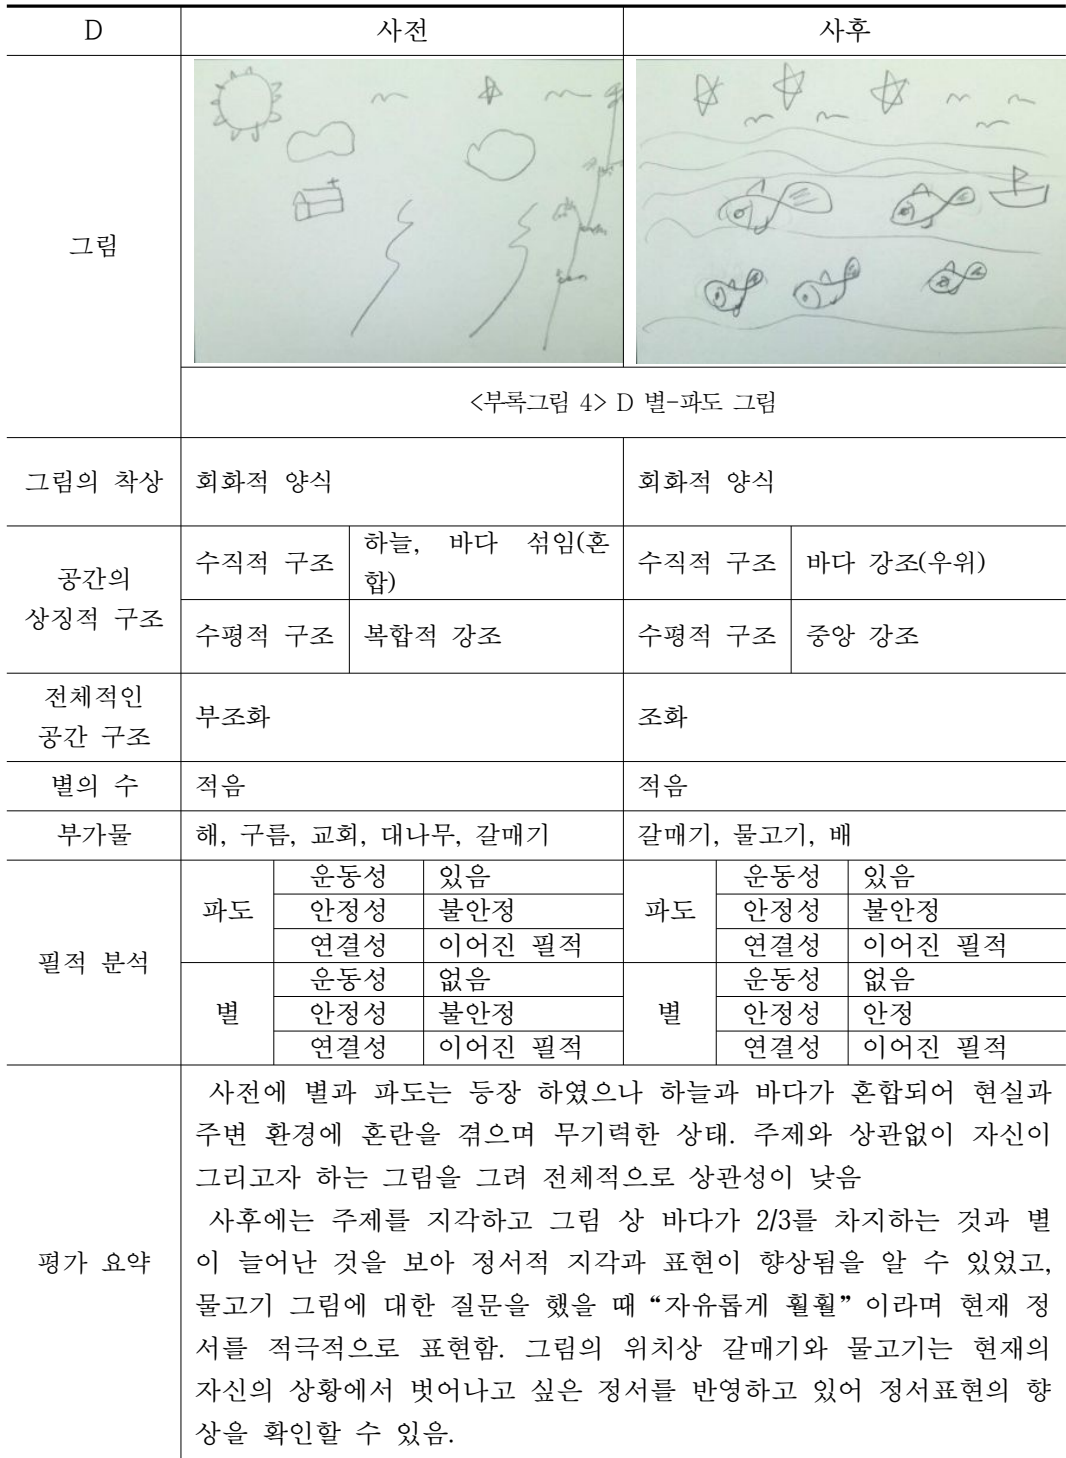 D 사전 사후
그림
<부록그림 4> D 별-파도 그림
그림의 착상 회화적 양식 회화적 양식
공간의
상징적 구조
수직적 구조 하늘, 바다 섞임(혼
합)
수직적 구조 바다 강조(우위)
수평적 구조 복합적 강조 수평적 구조 중앙 강조
전체적인
공간 구조
부조화 조화
별의 수 적음 적음
부가물 해, 구름, 교회, 대나무, 갈매기 갈매기, 물고기, 배
필적 분석
파도 운동성 있음 파도 운동성 있음
안정성 불안정 안정성 불안정
연결성 이어진 필적 연결성 이어진 필적
별 운동성 없음 별 운동성 없음
안정성 불안정 안정성 안정
연결성 이어진 필적 연결성 이어진 필적
평가 요약
사전에 별과 파도는 등장 하였으나 하늘과 바다가 혼합되어 현실과
주변 환경에 혼란을 겪으며 무기력한 상태. 주제와 상관없이 자신이
그리고자 하는 그림을 그려 전체적으로 상관성이 낮음
사후에는 주제를 지각하고 그림 상 바다가 2/3를 차지하는 것과 별
이 늘어난 것을 보아 정서적 지각과 표현이 향상됨을 알 수 있었고,
물고기 그림에 대한 질문을 했을 때 “자유롭게 훨훨” 이라며 현재 정
서를 적극적으로 표현함. 그림의 위치상 갈매기와 물고기는 현재의
자신의 상황에서 벗어나고 싶은 정서를 반영하고 있어 정서표현의 향
상을 확인할 수 있음.